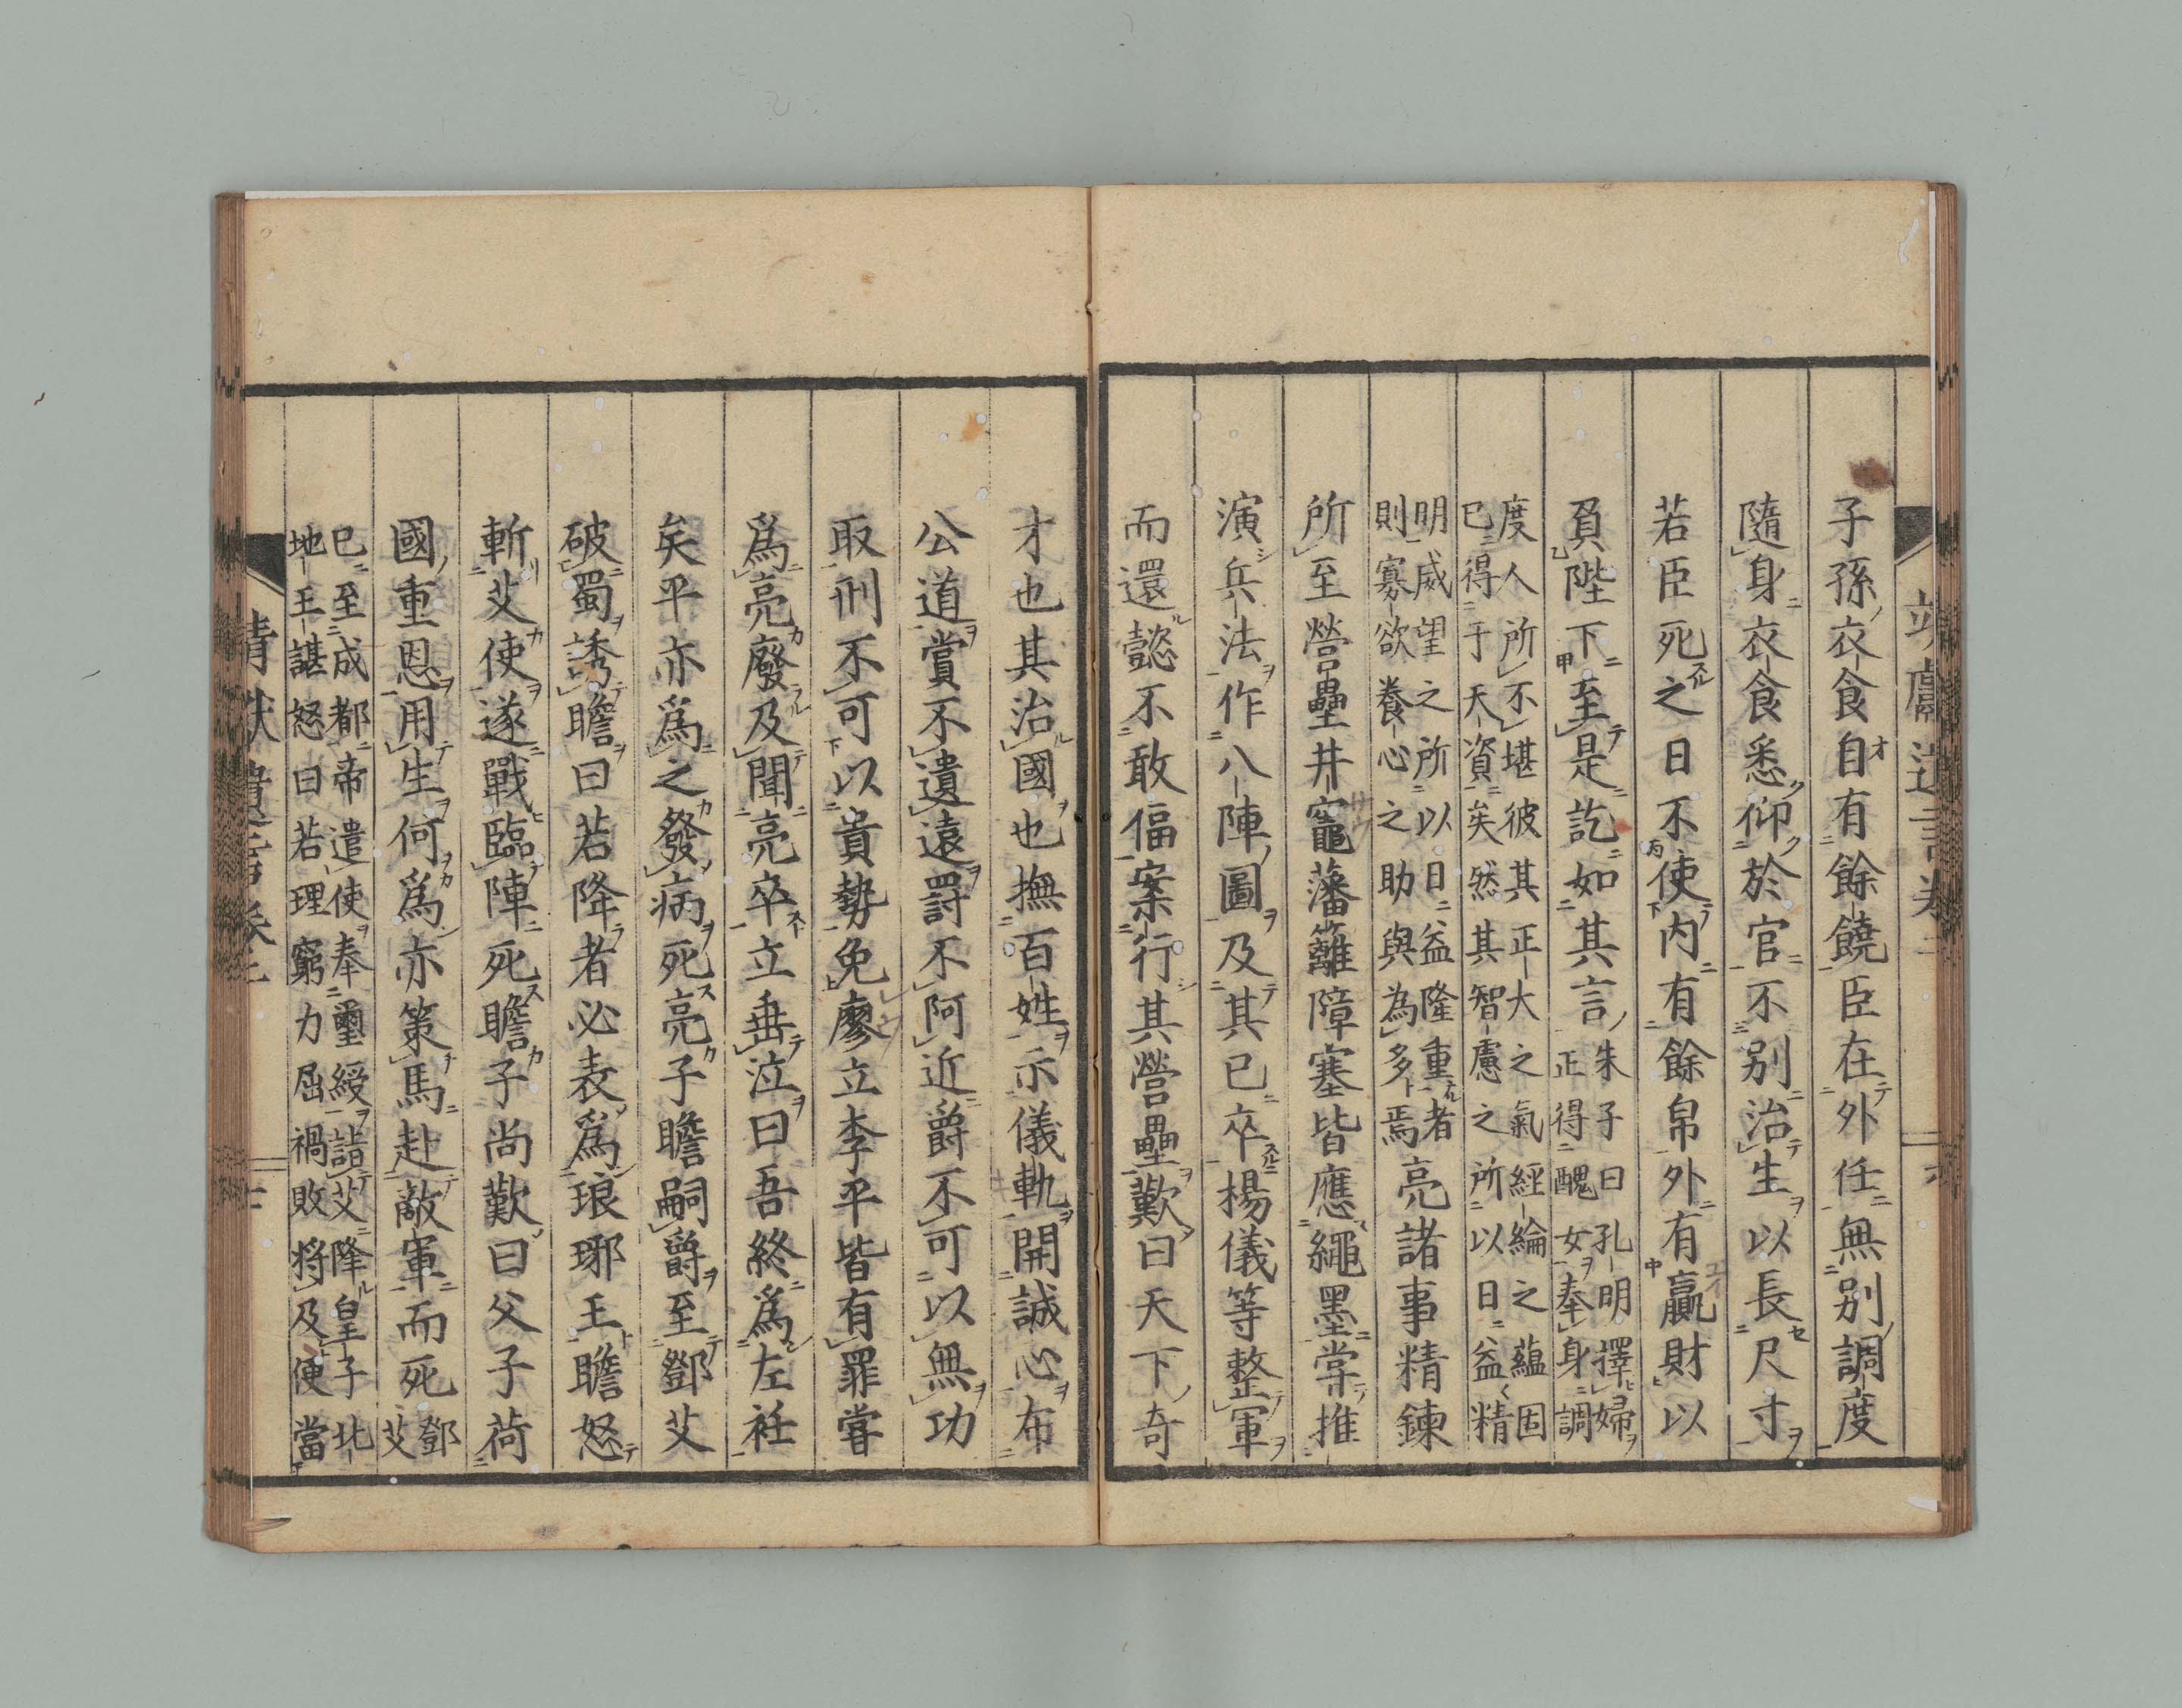 子孫衣食自有餘饒臣在外任無別調度
隨身衣食悉仰於官不別治生以長尺寸
若臣死之日不使內有餘帛外有贏財以
負陛下至是訖如其言
朱子曰孔明擇婦
正得醜女奉身調
度人所不堪彼其正大之氣經綸之蘊固
已得于天資矣然其智慮之所以日益精
明威望之所以日益隆重者
則寡欲養心之助與為多焉
亮諸事精鍊
所至營壘井竈藩籬障塞皆應繩墨嘗推
演兵法作八陣圖及其已卒楊儀等整軍
而還懿不敢偪案行其營壘歎曰天下奇
才也其治國也撫百姓示儀軌開誠心布
公道賞不遺遠罰不阿近爵不可以無功
取刑不可以貴勢免廖立李平皆有罪嘗
爲亮廢及聞亮卒立垂泣曰吾終爲左衽
矣平亦爲之發病死亮子瞻嗣爵至鄧艾
破蜀誘瞻曰若降者必表爲琅琊王瞻怒
斬艾使遂戰臨陣死瞻子尚歎曰父子荷
國重恩用生何爲亦策馬赴敵軍而死
鄧
艾
已至成都帝遣使奉璽綬詣艾降皇子北
地王諶怒曰若理窮力屈禍敗將及便當